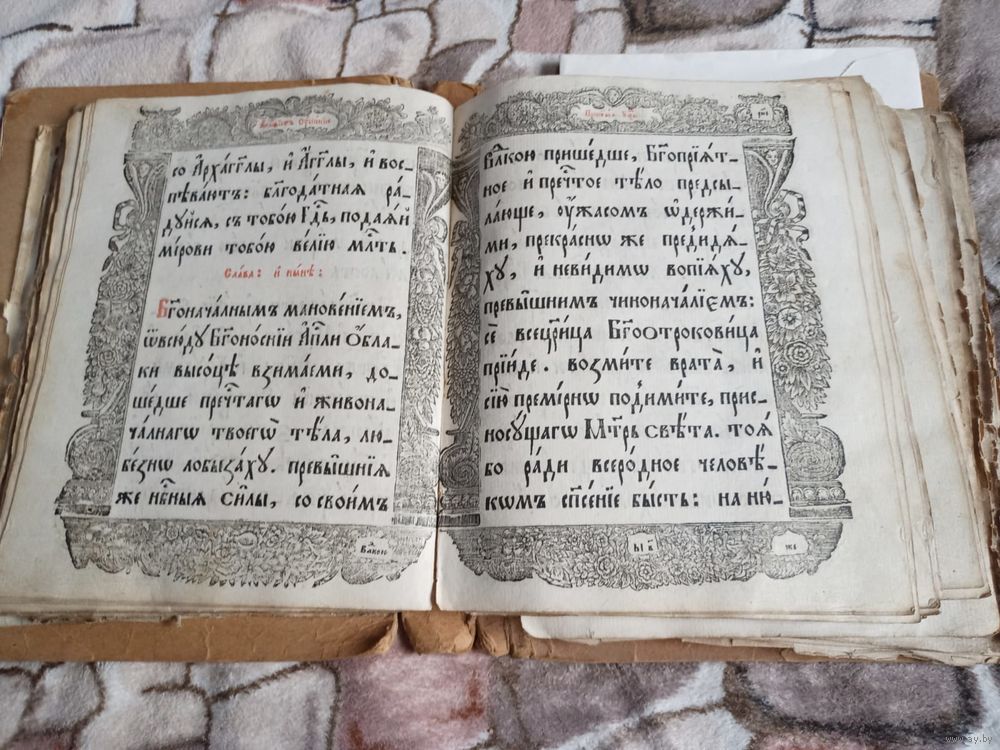 со А҆рха́гг҃лы, и҆ А҆́гг҃лы, и҆ вос_
пѣва́ютъ: благода́тная ра_
дꙋ́йсѧ, съ тобо́ю Гдⷭ҇ь, подаѧ́й
мі́рови тобо́ю ве́лїю млⷭ҇ть.
Сла́ва: и҆ ны́нѣ:
Бг҃онача́лнымъ манове́нїемъ,
ѿвсю́дꙋ Бг҃оно́снїи А҆пⷭ҇ли Ѻ҆́бла_
ки высо́цѣ взима́еми, до_
ше́дше пречⷭ҇тагѡ и҆ живона_
ча́лнагѡ твоегѡ̀ тѣ́ла, лю_
бе́знѡ лобыза́хꙋ. превы́шнїѧ
же нбⷭ҇ныѧ си́лы, со свои́мъ
Влⷣкою
Влⷣкою прише́дше, Бг҃опрїѧ́т_
ное и҆ пречⷭ҇тое тѣ́ло предсы_
ла́юще, ᲂу҆́жасомъ ѡ҆держи́_
ми, прекра́снѡ же преди́дѧ_
хꙋ, и҆ неви́димѡ вопїѧ́хꙋ,
превы́шнимъ чинонача́лїємъ:
сѐ всецр҃и́ца Бг҃оѻтрокови́ца
прїи́де. возми́те врата̀, и҆
сїю̀ премі́рнѡ поди́мите, прис_
носꙋ́щагѡ Мт҃рь свѣ́та. тоѧ́
бо ра́ди всеро́дное человѣ́_
кѡмъ сп҃се́нїе бы́сть: на ню́_
же
www.ay.by